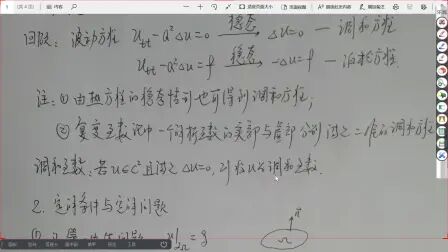 回顾: 波动方程 u_tt - a²Δu = 0 —稳态→ Δu = 0 — 调和方程
u_tt - a²Δu = f —稳态→ -Δu = f — 泊松方程.
注: ① 由热方程的稳态情形也可得到调和方程;
② 复变函数论中一个解析函数的实部与虚部分别满足二维的调和方程
调和函数: 若 u∈C² 且满足 Δu=0, 则称 u 为调和函数.
2. 定解条件与定解问题